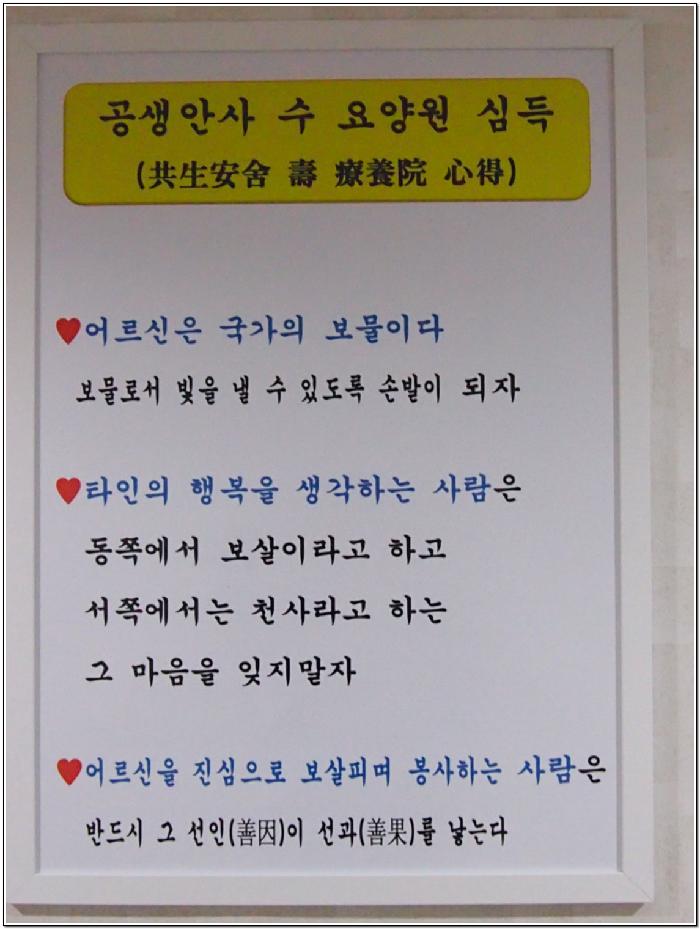 공생안사 수 요양원 심득
(共生安舍 壽 療養院 心得)
♥어르신은 국가의 보물이다
보물로서 빛을 낼 수 있도록 손발이 되자
♥타인의 행복을 생각하는 사람은
동쪽에서 보살이라고 하고
서쪽에서는 천사라고 하는
그 마음을 잊지말자
♥어르신을 진심으로 보살피며 봉사하는 사람은
반드시 그 선인(善因)이 선과(善果)를 낳는다